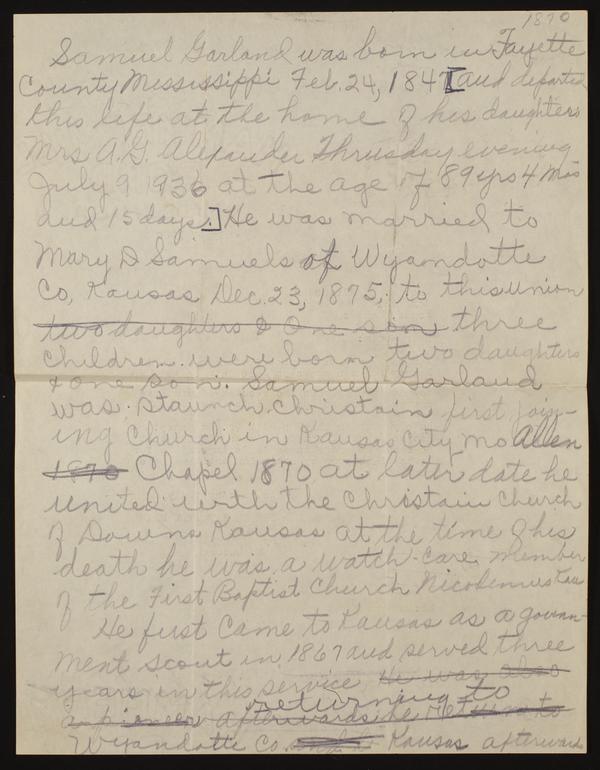 1870
Samuel Garland was born in Fayette
County Mississippi Feb. 24, 1847 [and departed
this life at the home of his daughters
Mrs A.G. Alexander Thrusday evening
July 9 1936 at the age of 89 yrs 4 Mos
and 15 days.] He was married to
Mary D Samuels of Wyandotte
Co, Kansas Dec. 23, 1875, to this union
two daughters & One son three
children were born two daughters
& one son. Samuel Garland
was staunch Christain first join-
ing Church in Kansas City Mo Allen
1870 Chapel 1870 at later date he
united with the Christain Church
of Downs Kansas at the time of his
death he was a watch-care member
of the First Baptist Church Nicodemus Kan
He first Came to Kansas as a govern-
ment scout in 1867 and served three
years in this service He was also
returning to
a pioneer afterwards he return to
Wyandotte Co. Kansas afterward